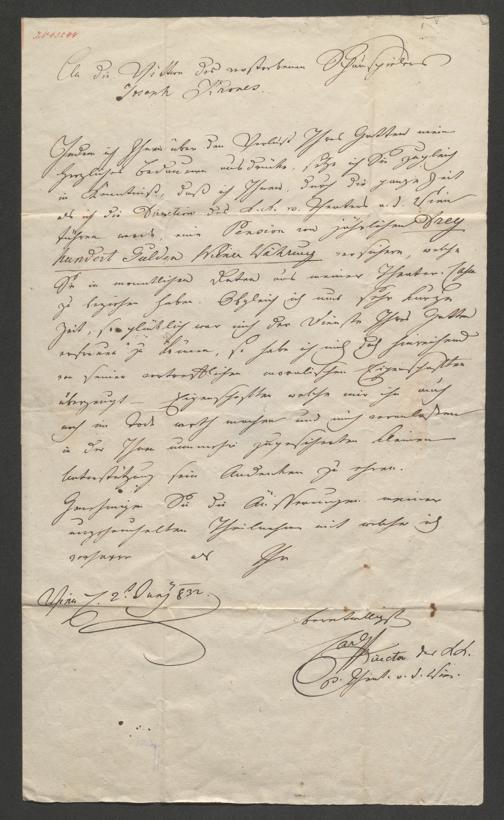 An die Wittwe des verstorbenen Schauspielers
Joseph Krones.
Indem ich Ihnen über den Verlust Ihres Gatten mein
herzliches Bedauern ausdrücke, setze ich Sie zugleich
in Kenntniß, daß ich Ihnen, durch die ganze Zeit
als ich die Direction des k.k. p. Theaters a. d. Wien
führen werde eine Pension von jährlichen Drey
hundert Gulden Wiener Währung versichere, welche
Sie in monatlichen Raten aus meiner Theater-Cassa
zu beziehen haben. Obgleich ich nur sehr kurze
Zeit, so glücklich war mich der Dienste Ihres Gatten
erfreuen zu können, so habe ich mich doch hinreichend
von seinen vortrefflichen moralischen Eigenschaften
überzeugt – Eigenschaften welche mir ihn auch
noch im Tode werth machen und mich veranlassen
in der Ihnen nunmehr zugesicherten kleinen
Unterstützung sein Andenken zu ehren.
Genehmigen Sie die Äusserungen meiner
ungeheuchelten Theilnahme mit welcher ich
verharre als Ihr
Wien d. 2t Juny 832.
bereitwilligst
Carl
Director des k.k.
p. Theat. a. d. Wien.